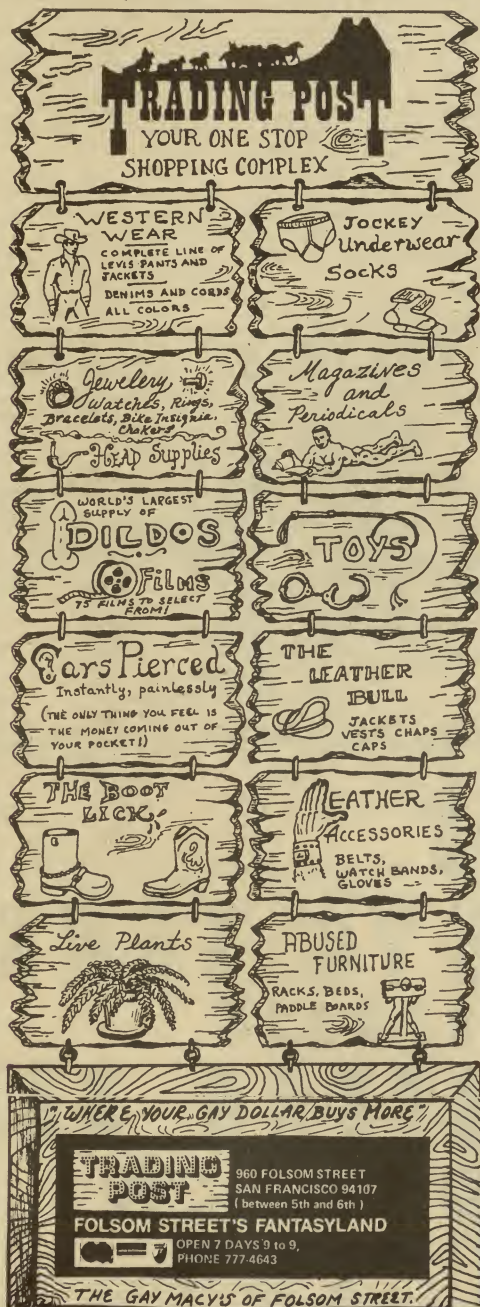 TRADING POST
YOUR ONE STOP
SHOPPING COMPLEX
WESTERN
WEAR
COMPLETE LINE OF
LEVIS PANTS AND
JACKETS
DENIMS AND CORDS
ALL COLORS
JOCKEY
Underwear
Socks
Jewelery
Watches, Rings,
Bracelets, Bike Insignia,
Chokers
HEAD Supplies
Magazines
and
Periodicals
WORLD'S LARGEST
SUPPLY OF
DILDOS
FILMS
75 FILMS TO SELECT
FROM!
TOYS
Ears Pierced
Instantly, painlessly
(THE ONLY THING YOU FEEL IS
THE MONEY COMING OUT OF
YOUR POCKET!)
THE
LEATHER
BULL
JACKETS
VESTS CHAPS
CAPS
THE BOOT
LICK
LEATHER
ACCESSORIES
BELTS,
WATCH BANDS,
GLOVES
Live Plants
ABUSED
FURNITURE
RACKS, BEDS,
PADDLE BOARDS
"WHERE YOUR GAY DOLLAR BUYS MORE"
TRADING
POST
960 FOLSOM STREET
SAN FRANCISCO 94107
(between 5th and 6th)
FOLSOM STREET'S FANTASYLAND
OPEN 7 DAYS 9 to 9,
PHONE 777-4643
THE GAY MACY'S OF FOLSOM STREET.